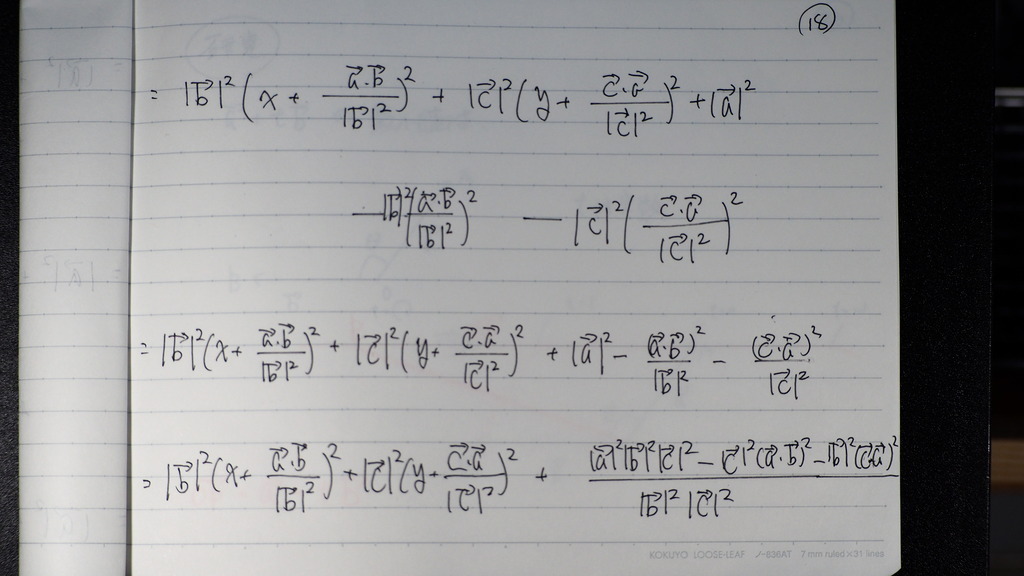 (18)
= |b⃗|²(x + a⃗·b⃗/|b⃗|²)² + |c⃗|²(y + c⃗·a⃗/|c⃗|²)² + |a⃗|²
− |b⃗|²(a⃗·b⃗/|b⃗|²)² − |c⃗|²(c⃗·a⃗/|c⃗|²)²
= |b⃗|²(x + a⃗·b⃗/|b⃗|²)² + |c⃗|²(y + c⃗·a⃗/|c⃗|²)² + |a⃗|² − (a⃗·b⃗)²/|b⃗|² − (c⃗·a⃗)²/|c⃗|²
= |b⃗|²(x + a⃗·b⃗/|b⃗|²)² + |c⃗|²(y + c⃗·a⃗/|c⃗|²)² + (|a⃗|²|b⃗|²|c⃗|² − |c⃗|²(a⃗·b⃗)² − |b⃗|²(c⃗·a⃗)²)/(|b⃗|²|c⃗|²)
KOKUYO LOOSE-LEAF ノ-836AT 7 mm ruled×31 lines